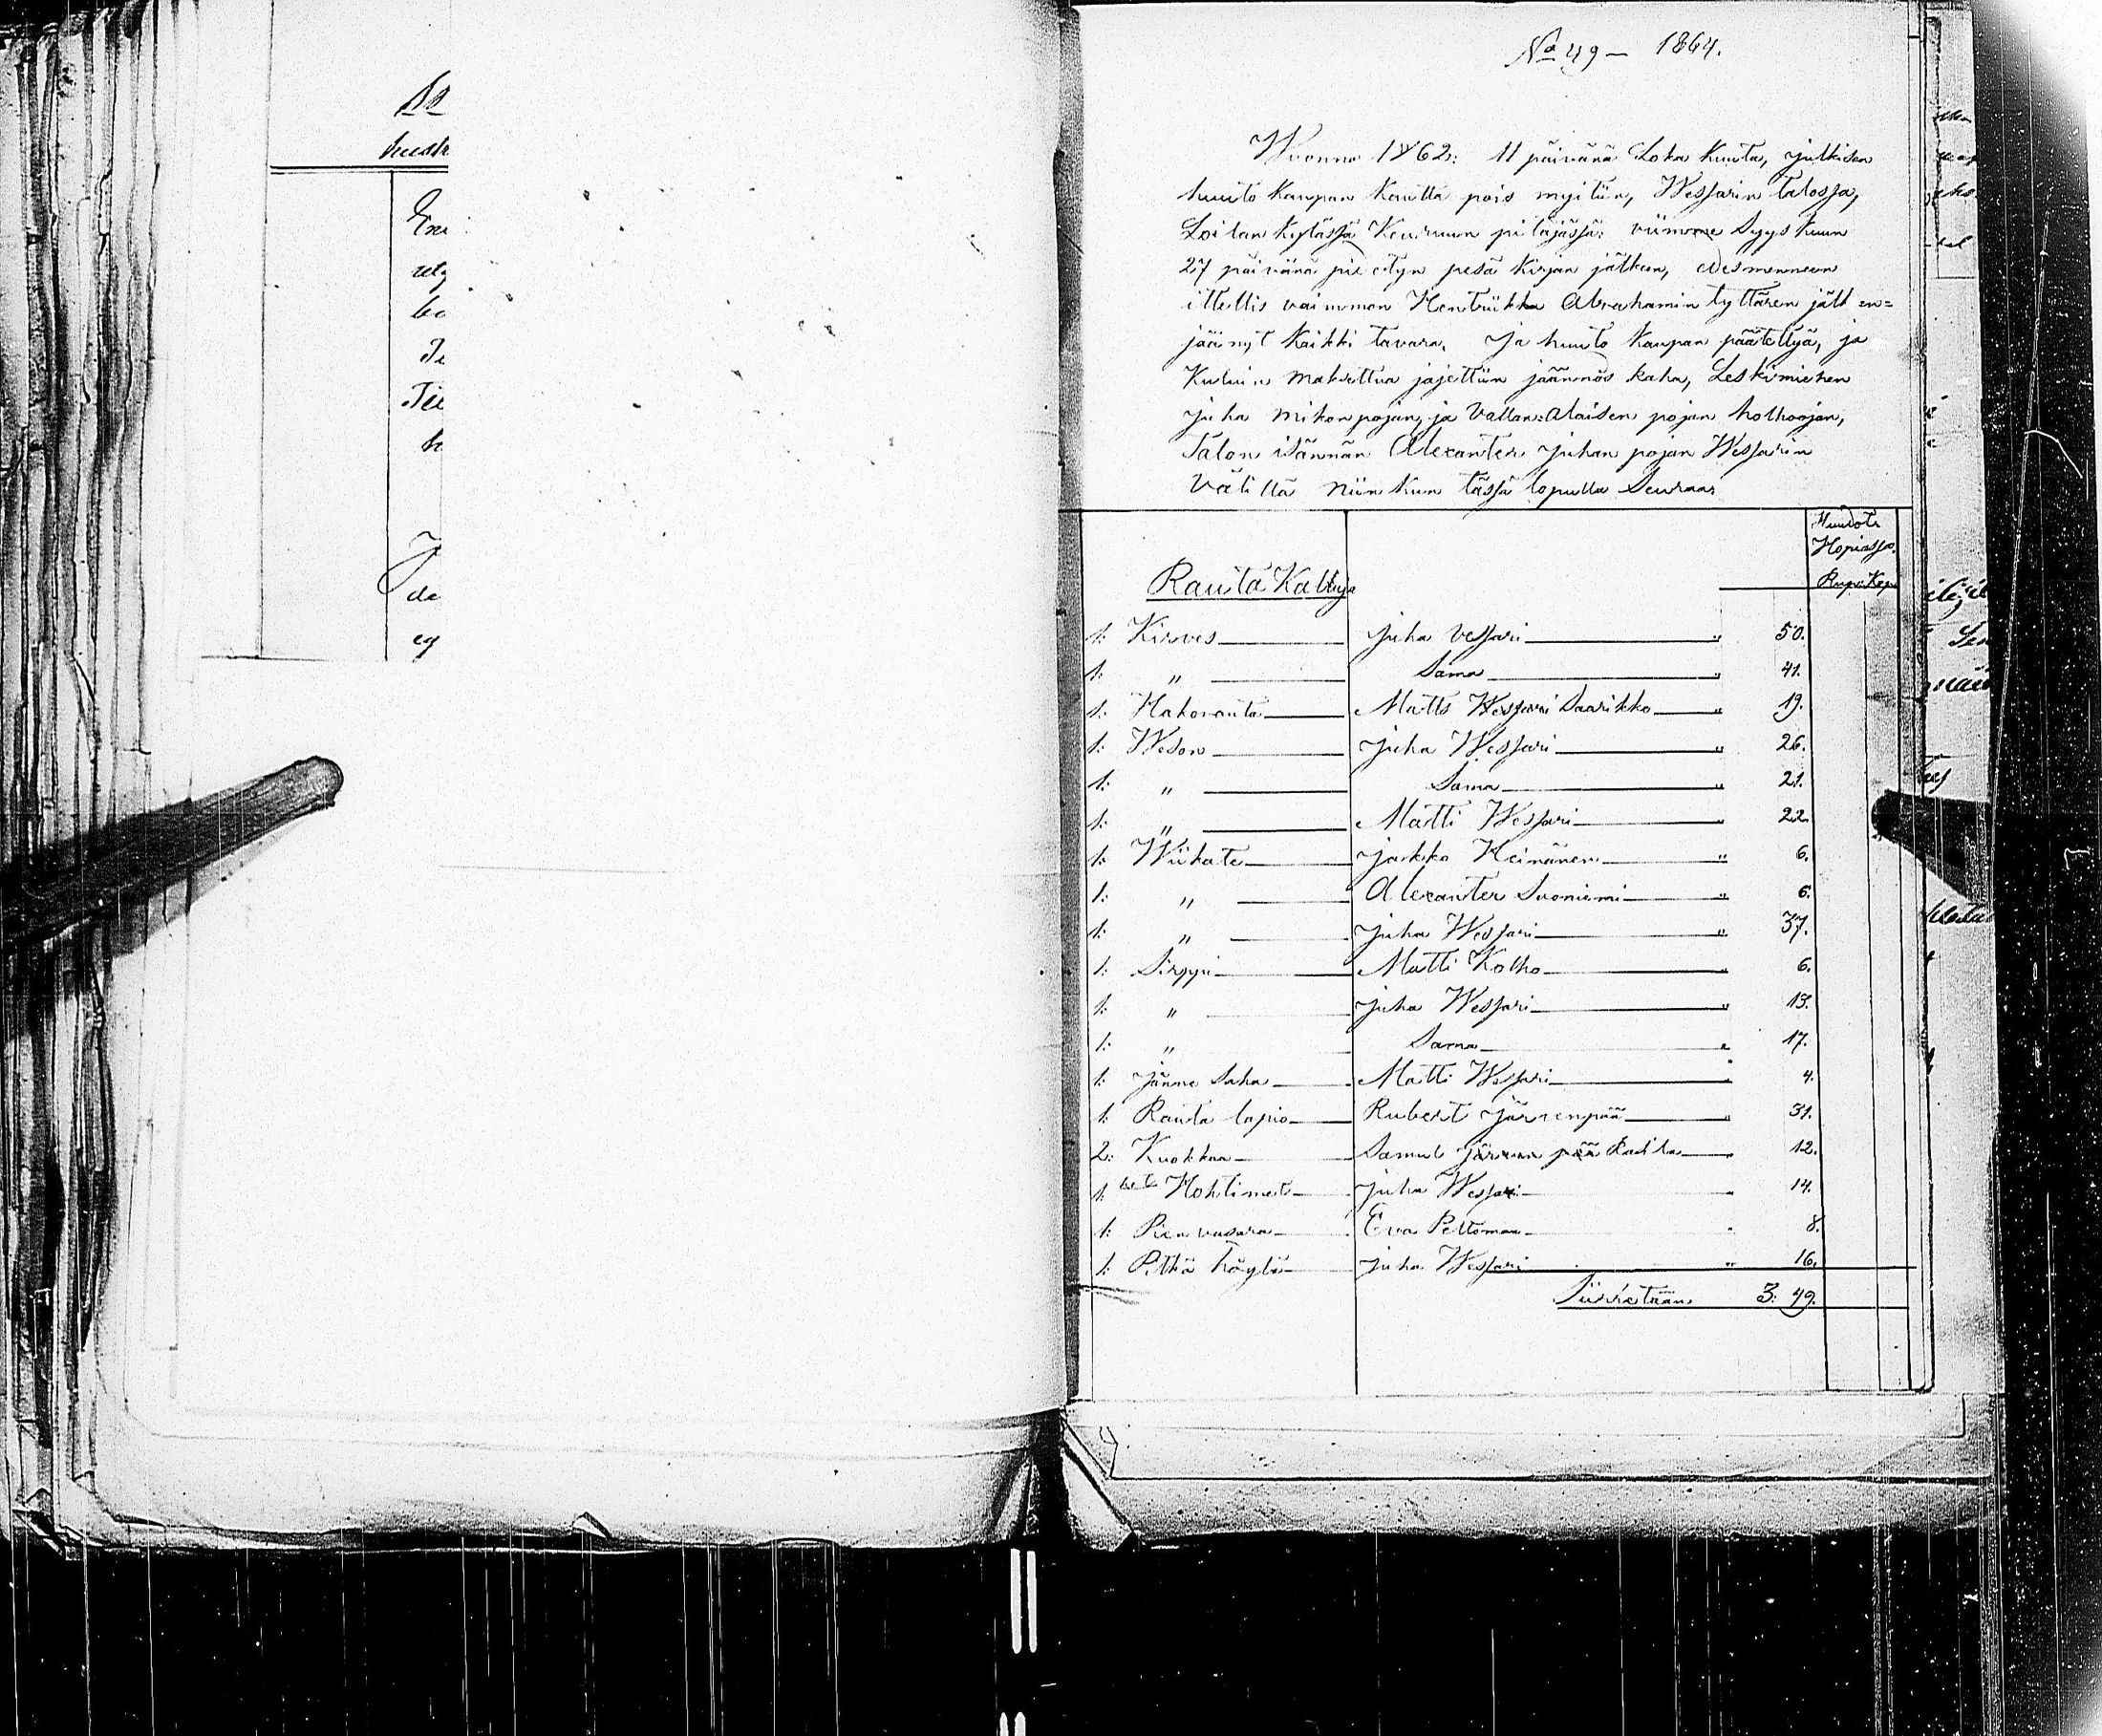 No 49 – 1864.
Wuonna 1862: 11 päivänä Loka kuuta, julkisen
huuto kaupan kautta pois myitiin, Wessarin talossa,
Loilan kylässä Keuruun pitäjässä: viimme Syys kuun
27 päivänä pidetyn pesä kirjan jälkeen, edesmenneen
ittellis vaimmon Hentriikka Abrahamin tyttären jält en=
jäänyt kaikki tavara. Ja huuto kaupan päätettyä, ja
Kuluin maksettua jajettiin jäännös raha, Leskimiehen
Juha mikonpojan, ja Vallan=alaisen pojan holhoojan,
Talon isännän Alexanter Juhan pojan Wessarin
Välillä niin kun tässä lopulla Seuraas
Huudot
Hopiassa.
Rup: Kop
Rauta Kaluja
1: Kirves Juha Vessari " 50.
1: " Sama " 41.
1: Hakorauta Matts Wessari Saarikko " 19.
1: Weson Juha Wessari " 26.
1: " Sama " 21.
1: " Matti Wessari " 22.
1: Wiikate Jaakko Heinänen " 6.
1: " Alexanter Suoniemi " 6.
1: " Juha Wessari " 37.
1: Sirppi Matti Kolho " 6.
1: " Juha Wessari " 13.
1: " Sama " 17.
1: Jänne Saha Matti Wessari " 4.
1: Rauta lapio Rubert Järvenpää " 31.
2: Kuokkaa Samul Järvenpää " 12.
1: Hohtimet Juha Wessari " 14.
1: Pien vasara Eva Peltoman " 8.
1: Pitkä höylä Juha Wessari " 16.
Siirretään 3: 49.